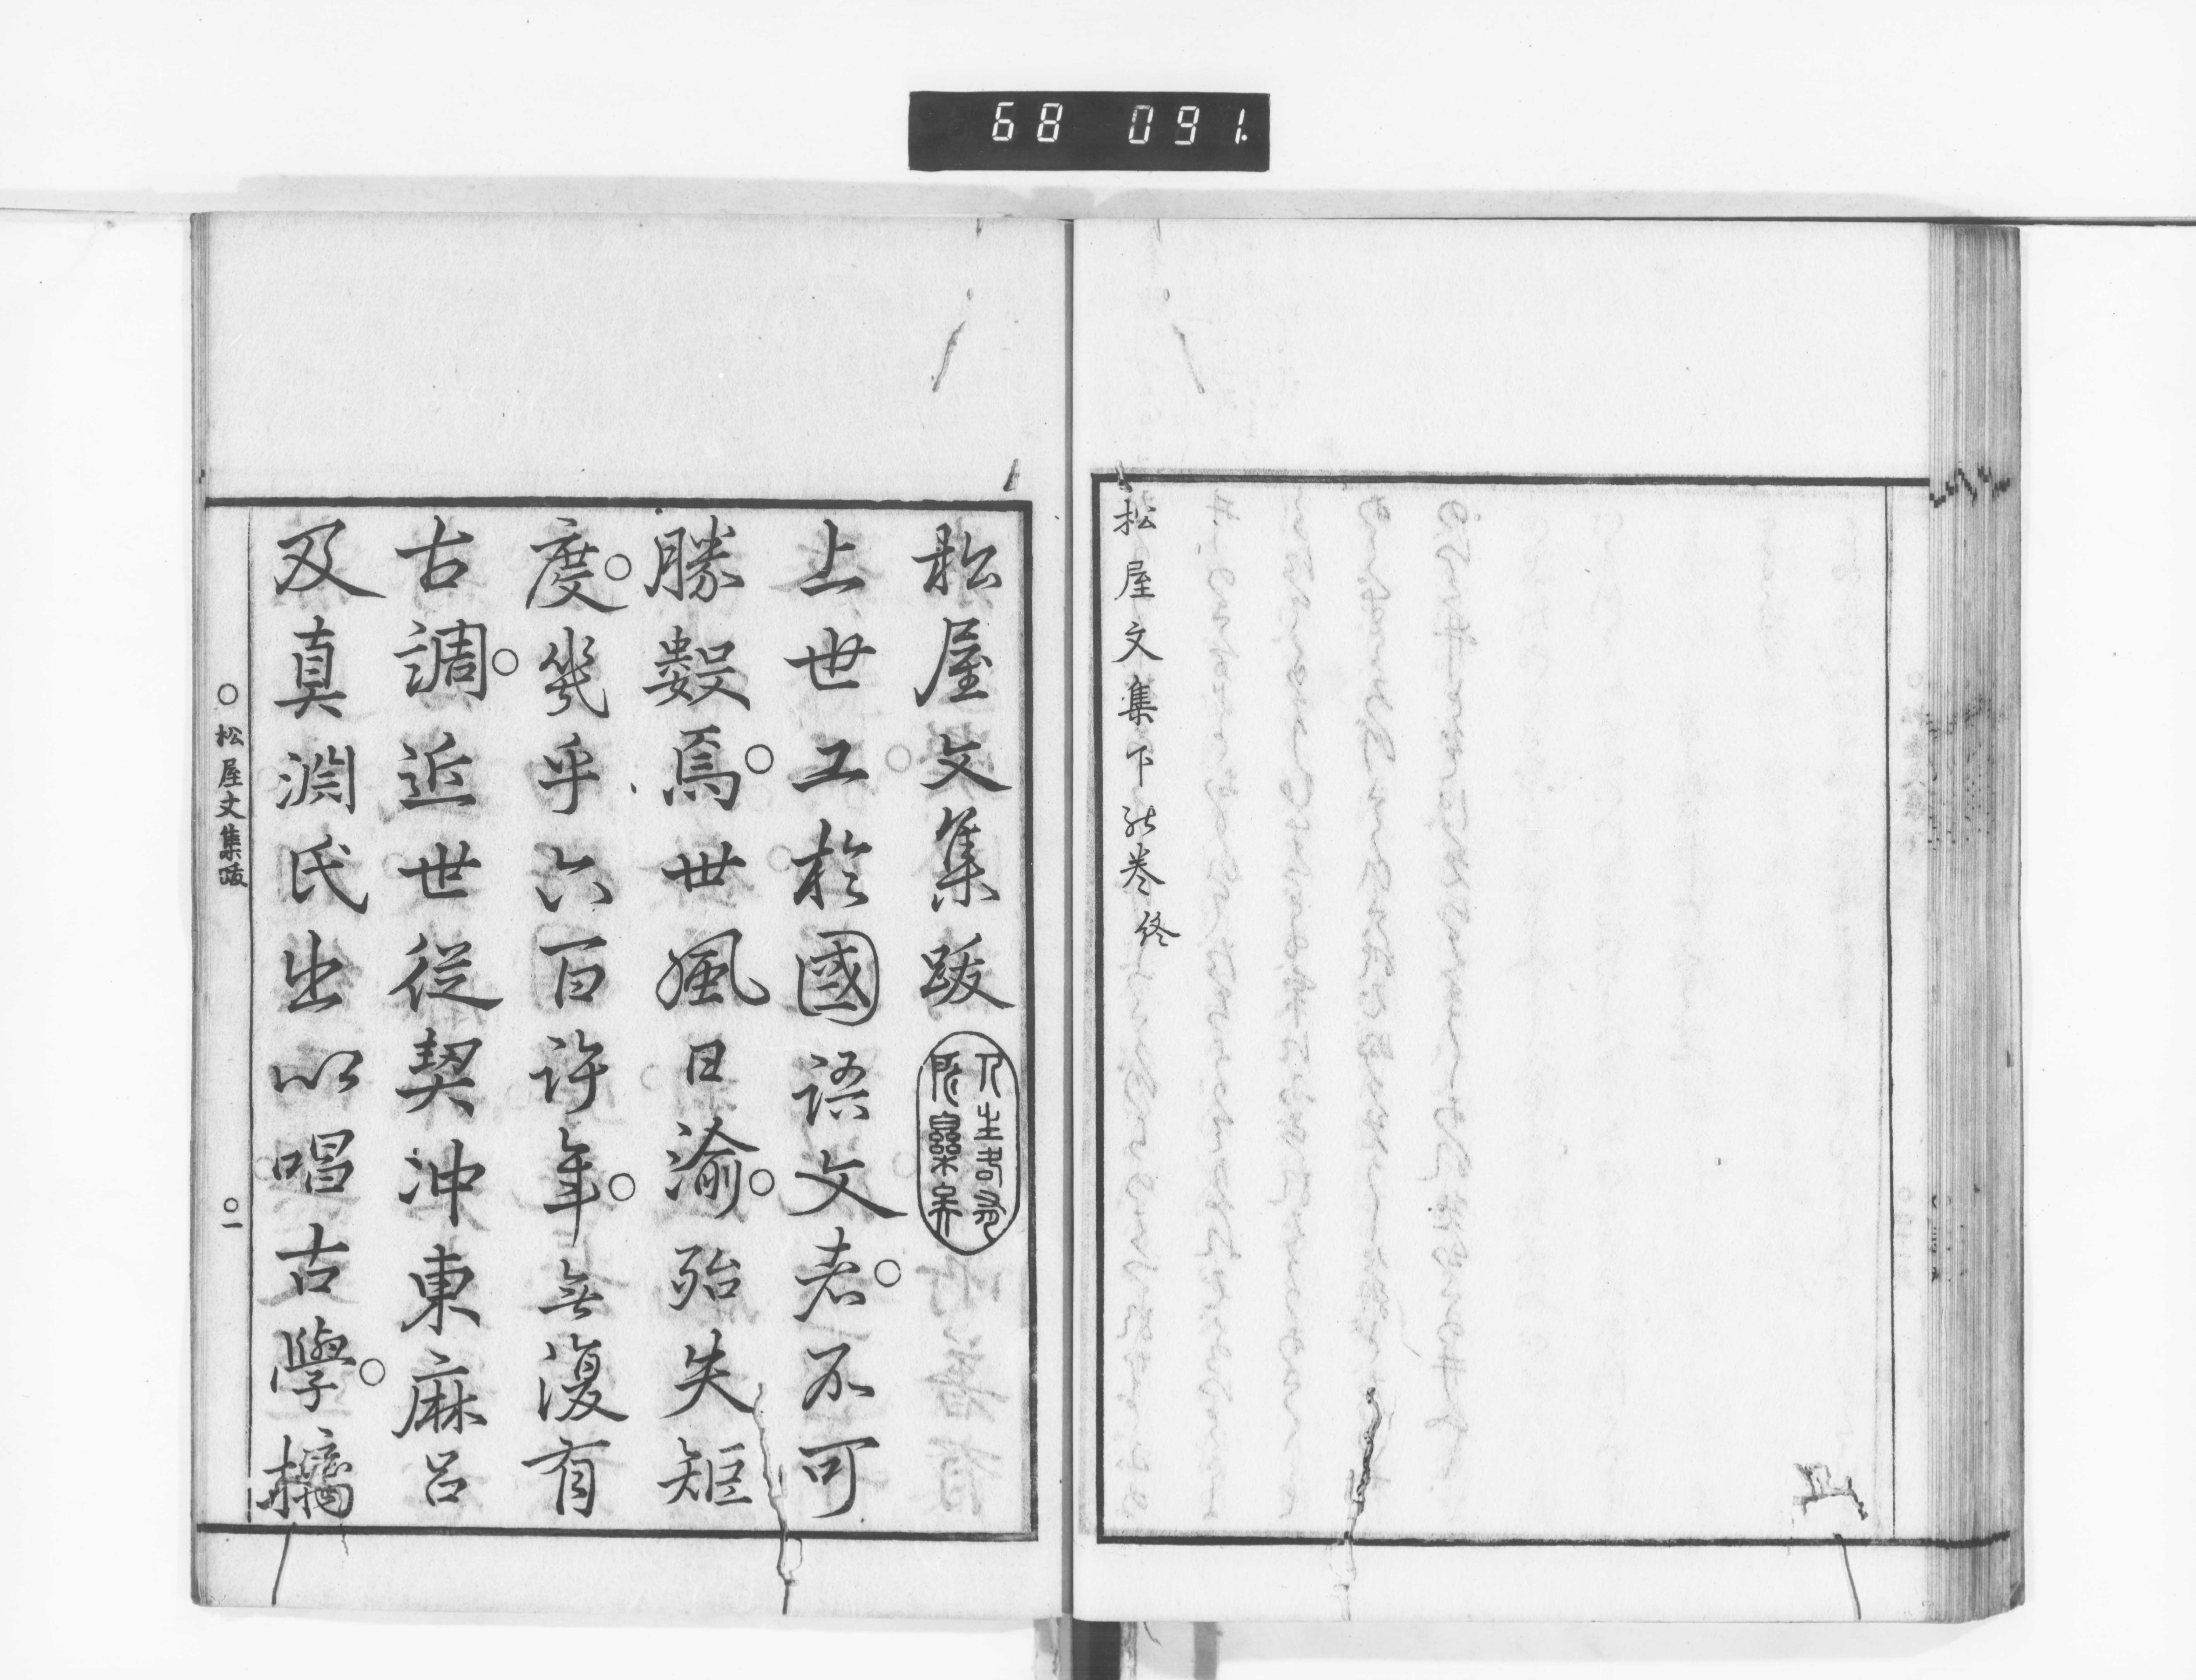 68 091.
松屋文集下能巻終
松屋文集跋
上世工於國語文者不可
勝數焉世風日渝殆失矩
度幾乎六百許年無復有
古調近世従契沖東麻呂
及真淵氏出以唱古學摛
松屋文集跋
一